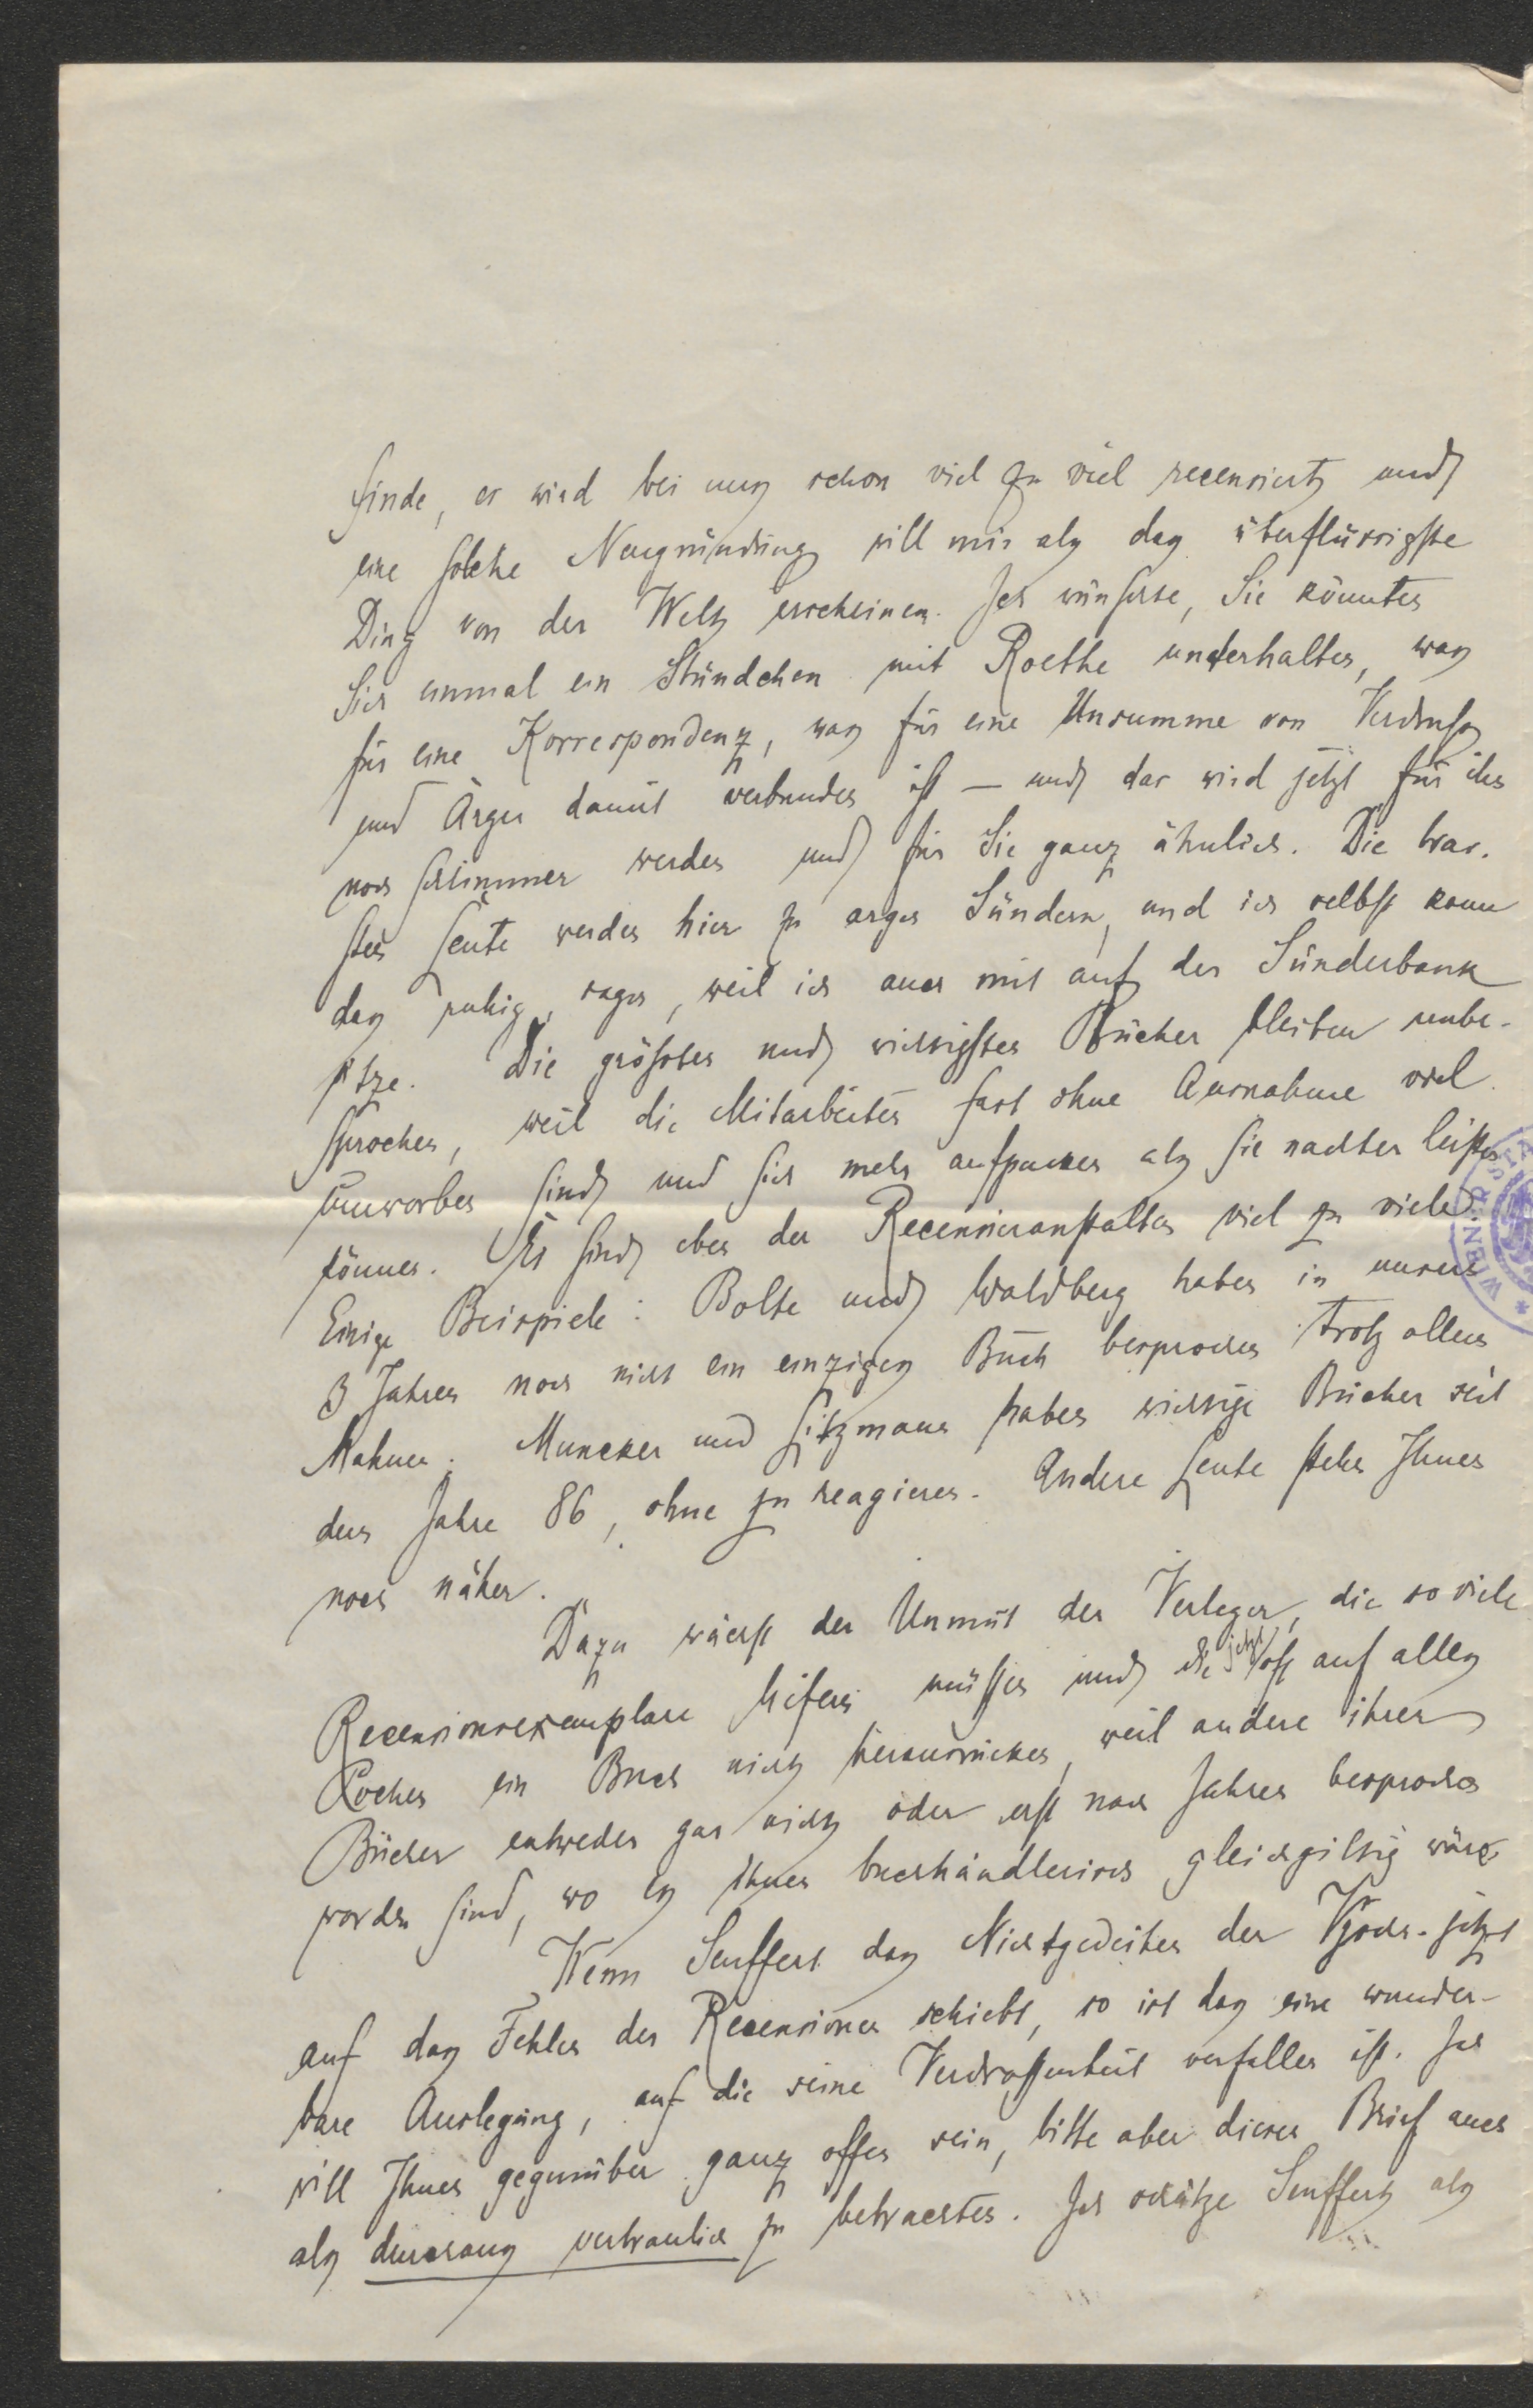 finde, es wird bei uns schon viel zu viel recensiert und
eine solche Neugründung will mir als das überflüssigste
Ding von der Welt erscheinen. Ich wünschte, Sie könnten
Sich einmal ein Stündchen mit Roethe unterhalten, was
für eine Korrespondenz, was für eine Unsumme von Verdruss
und Ärger damit verbunden ist — und das wird jetzt für ihn
noch schlimmer werden und für Sie ganz ähnlich. Die brav-
sten Leute werden hier zu argen Sündern, und ich selbst kann
das ruhig sagen, weil ich auch mit auf der Sünderbank
sitze. Die größten und wichtigsten Bücher bleiben unbe-
sprochen, weil die Mitarbeiter fast ohne Ausnahme viel
umworben sind und sich mehr aufpacken als sie nachher leisten
können. Es sind eben der Recensieranstalten viel zu viele.
Einige Beispiele: Bolte und Waldberg haben in unsern
3 Jahren noch nicht ein einziges Buch besprochen trotz allem
Mahnen. Muncker und Litzmann haben wichtige Bücher seit
dem Jahre 86, ohne zu reagieren. Andere Leute stehen Ihnen
noch näher.
Dazu wächst der Unmut der Verleger, die so viele
Recensionsexemplare liefern müssen und die jetzt oft auf alles
Pochen ein Buch nicht herausrücken, weil andere ihrer
Bücher entweder gar nicht oder erst nach Jahren besprochen
worden sind, wo es ihnen buchhändlerisch gleichgiltig wäre.
Wenn Seuffert das Nichtgedeihen der Vjschr. jetzt
auf das Fehlen der Recensionen schiebt, so ist das eine wunder-
bare Auslegung, auf die seine Verdrossenheit verfallen ist. Ich
will Ihnen gegenüber ganz offen sein, bitte aber diesen Brief auch
als durchaus vertraulich zu betrachten. Ich schätze Seuffert als